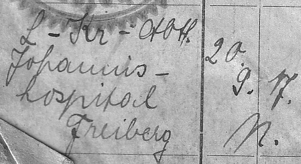 L-Kr-Abt.
Johannis-
hospital
Freiberg
20.
9. 17.
N.